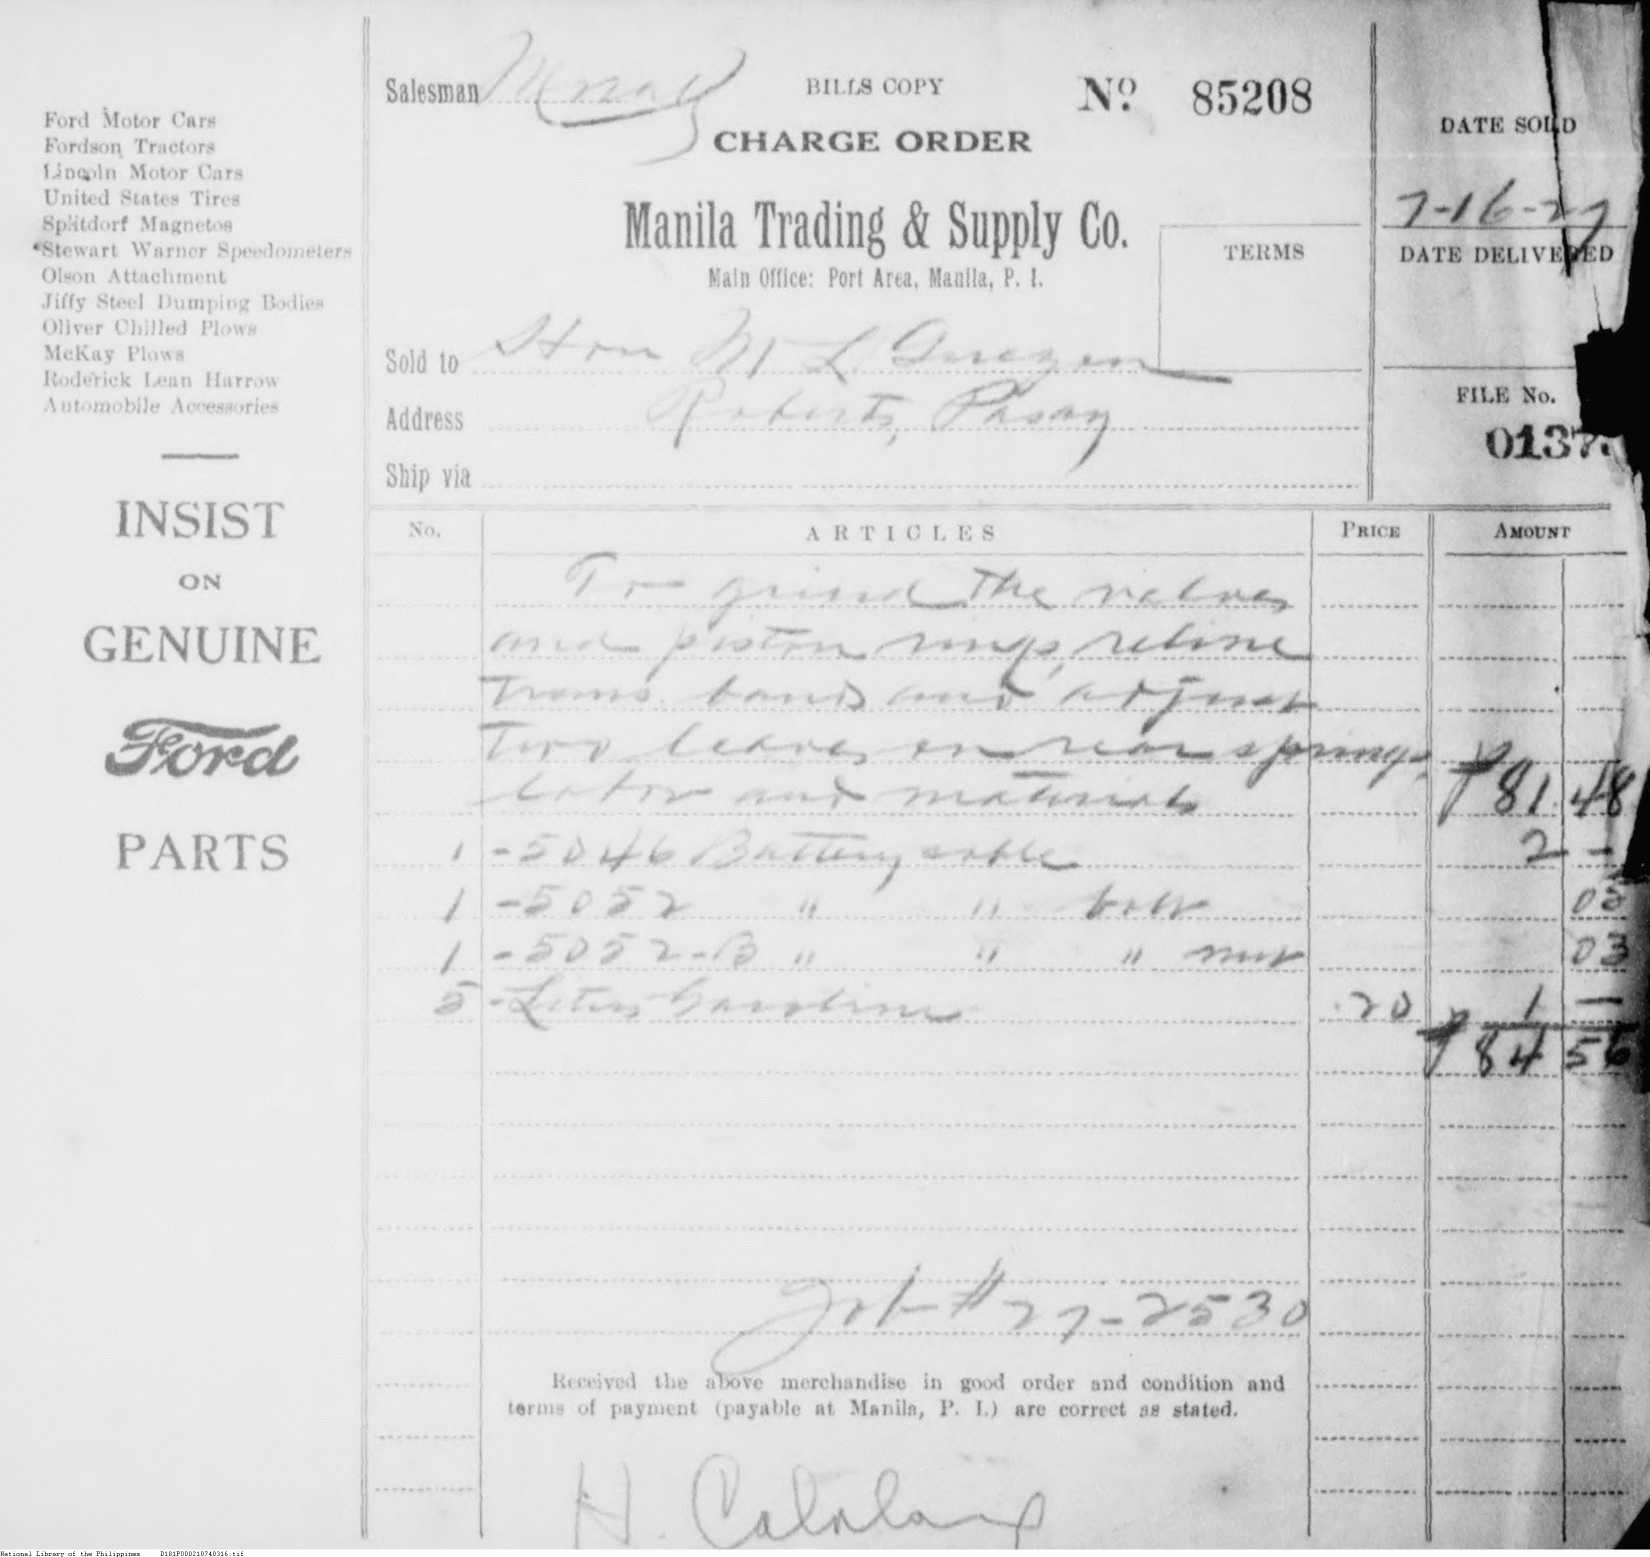 Ford Motor Cars
Fordson Tractors
Lincoln Motor Cars
United States Tires
Splitdorf Magnetos
Stewart Warner Speedometers
Olson Attachment
Jiffy Steel Dumping Bodies
Oliver Chilled Plows
McKay Plows
Roderick Lean Harrow
Automobile Accessories
INSIST
ON
GENUINE
Ford
PARTS
Salesman
BILLS COPY
No. 85208
CHARGE ORDER
Manila Trading & Supply Co.
Main Office: Port Area, Manila, P. I.
TERMS
DATE SOLD
7-16-27
DATE DELIVERED
FILE No.
0137
Sold to Hon M L Quezon
Address Roberts, Pasay
Ship via
No. ARTICLES PRICE AMOUNT
To grind the valves
and piston rings, reline
Trans. bands and adjust
Two leaves on rear springs,
labor and materials ₱81 48
1 -5046 Battery cable 2 -
1 -5052 " " bolt 05
1 -5052-B " " " nut 03
5 -Liters Gasoline .20 1 —
₱84 56
Job # 27-2530
Received the above merchandise in good order and condition and
terms of payment (payable at Manila, P. I.) are correct as stated.
H.
National Library of the Philippines D181P000210740316:tif